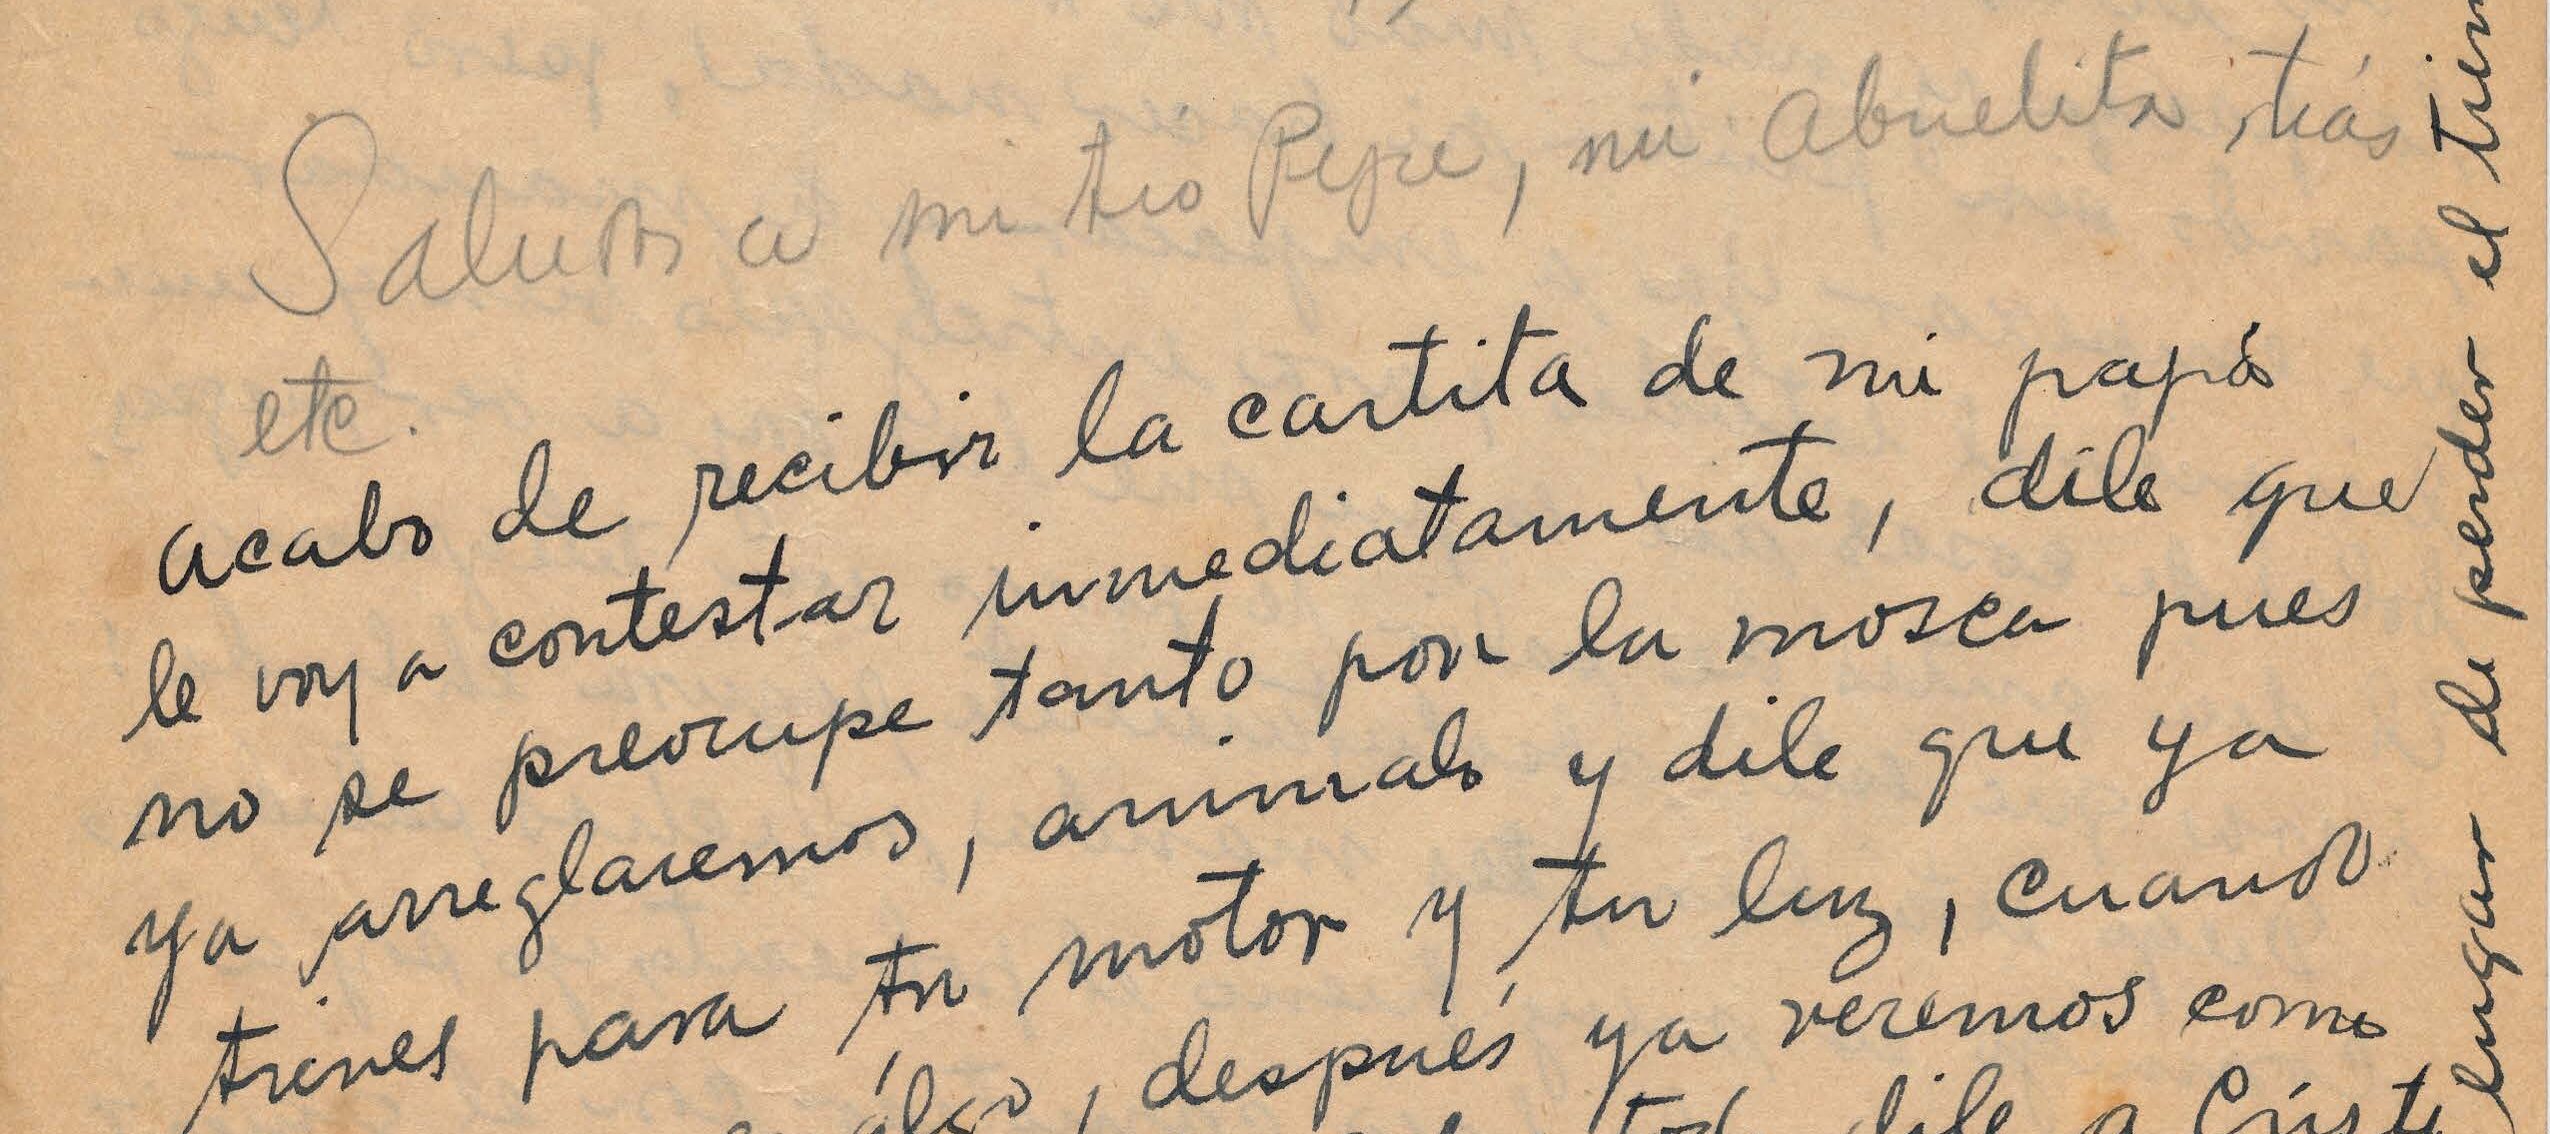 Saludos a mi tio Pepe, mi abuelita, tiás
etc.
acabo de recibir la cartita de mi papá
le voy a contestar inmediatamente, dile que
no se preocupe tanto por la mosca pues
ya arreglaremos, animalo y dile que ya
tienes para tu motor y tu luz, cuando
algo, después ya veremos como
dile a
lugar de perder el